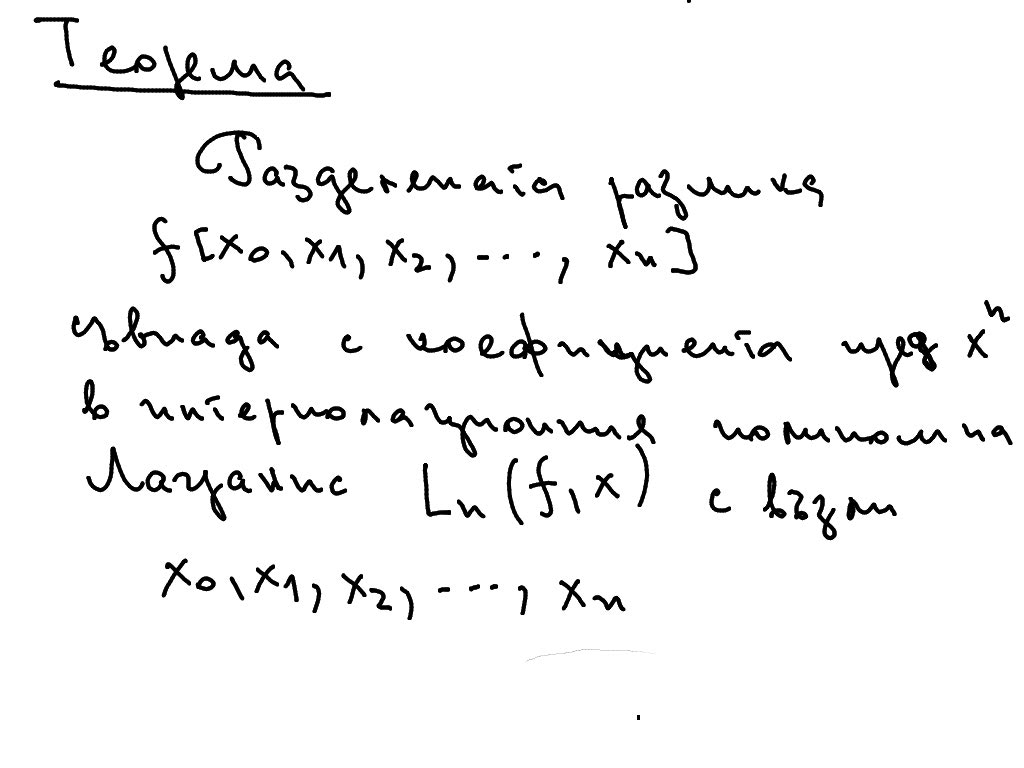 Теорема
Разделената разлика
f[x₀, x₁, x₂, ..., xₙ]
съвпада с коефициента пред xⁿ
в интерполационния полином на
Лагранж Lₙ(f, x) с възли
x₀, x₁, x₂, ..., xₙ